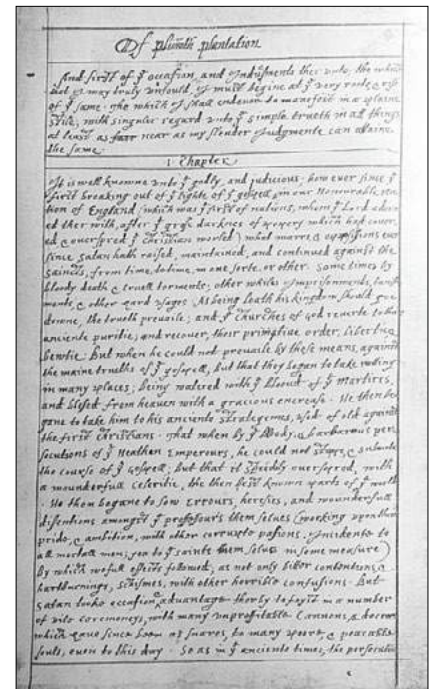 Of plimoth plantation
And first of yͤ occasion, and Indusments ther unto; the which
that I may truly unfould, I must begine at yͤ very roote & rise
of yͤ same. The which I shall endevor to manefest in a plaine
stile; with singuler regard unto yͤ simple trueth in all things,
at least as far near as my slender Judgmente can attaine
the same.
1. Chapter
It is well knowne unto yͤ godly, and judicious; how ever since yͤ
first breaking out of yͤ lighte of yͤ gospell, in our Honourable na-
tion of England (which was yͤ first of nations, whom yͤ Lord ador-
ed ther with, after yͤ grosse darknes of popery which had cover-
ed & overspred yͤ christian world) what warrs, & oppissions ever
since satan hath raised, maintained, and continued against the
saincts, from time, to time, in one sorte, or other. Some times by
bloody death & cruell torments; other whiles Imprisonments, banish-
ments, & other hard usages. As being loath his kingdom should goe
downe, the trueth prevaile; and yͤ churches of God reverte to their
anciente puritie; and recover, their primative order, libertie, &
bewtie. But when he could not prevaile by these means, against
the maine trueths of yͤ gospell, but that they began to take rooting
in many places; being watered with yͤ bloud of yͤ martires,
and blessed from heaven with a gracious encrease. He then be-
gane to take him to his anciente strategemes, used of old against
the first christians. That when by yͤ bloody, & barbarous per-
secutions of yͤ Heathen Emperours, he could not stoppe, & subverte
the course of yͤ gospell; but that it speedily overspred, with
a wounderfull celeritie, the then best known parts of yͤ world.
He then begane to sow errours, heresies, and wounderfull
disentions amongst yͤ professours them selves (working upon their
pride, & ambition, with other corrupte passions, Incidente to
all mortall men; yea to yͤ saints them selves in some measure)
by which wofull effects followed; as not only bitter contentions, &
hartburnings, schismes, with other horrible confusions. But
satan tooke occasion & advantage therby to foyst in a number
of vile ceremoneys, with many unprofitable Cannons, & decrees
which have since been as snares, to many poore, & peaceable
souls, even to this day. So as in yͤ anciente times, the persecutio